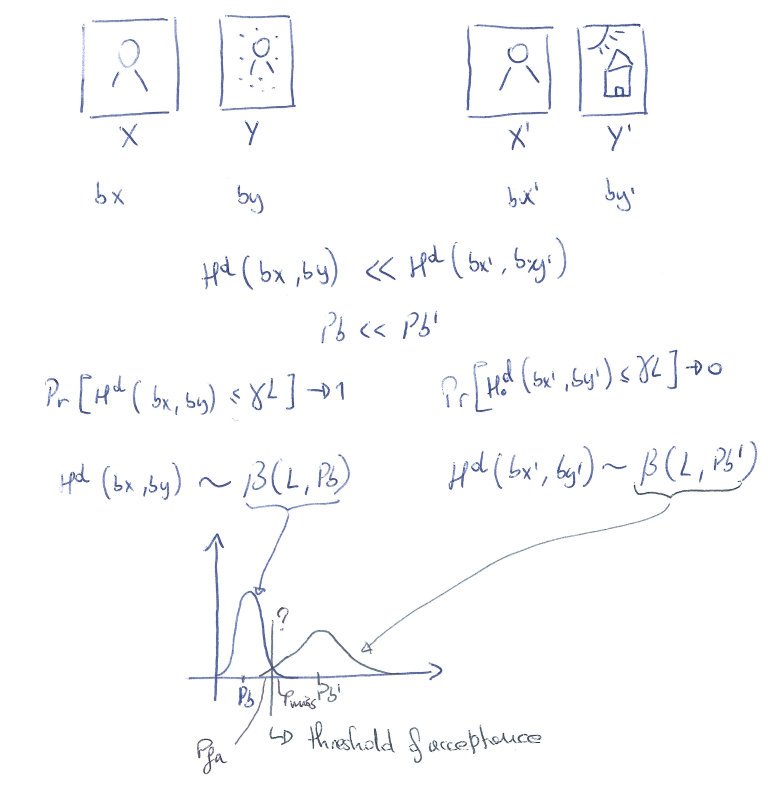 X Y X' Y'
bx by bx' by'
H^d(bx, by) << H^d(bx', by')
Pb << Pb'
Pr[H^d(bx, by) ≤ γL] → 1 Pr[H^d(bx', by') ≤ γL] → 0
H^d(bx, by) ~ β(L, Pb) H^d(bx', by') ~ β(L, Pb')
?
Pb Pmiss Pb'
Pfa ↳ threshold of acceptance